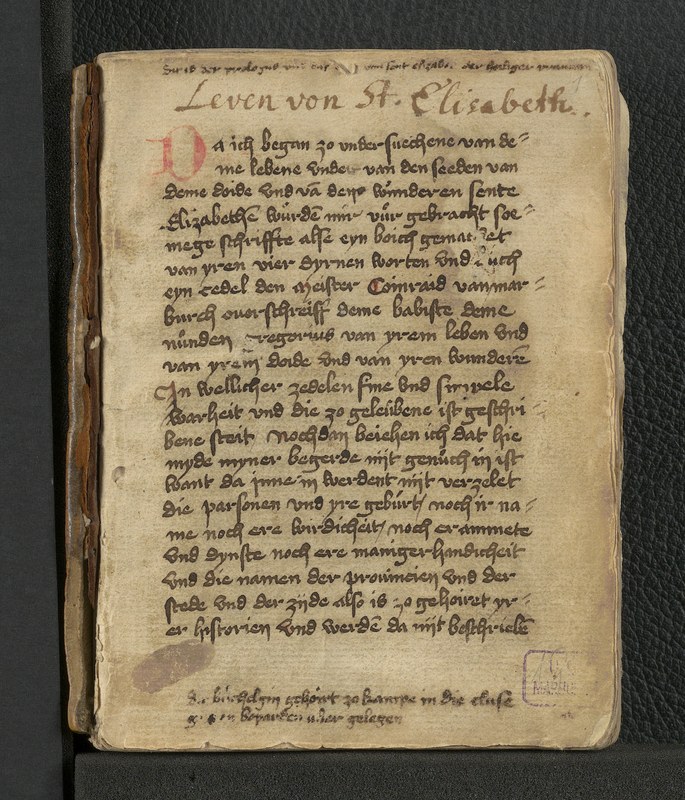 Dit is der prologus van sent elizabet der heiliger
Leven von St. Elisabeth.
Da ich began zo undersuechene van de=
me lebene vnde van den seeden van
deme doide vnd vā den wūnderen sente
Elizabethē wūrdē mir vūr gebracht soe=
mege schriffte alse eyn boich gemachet
van yren vier dyrnen worten vnd auch
eyn cedel den meister Coinraid van mar=
burch ouerschreiff deme babiste deme
nūnden Gregorius van yrem leben vnd
van yrem doide vnd van yren wunderē
In wellicher zedelen sine vnd simpele
warheit vnd die zo geleūbene ist geschri=
bene steit nochdan beiehen ich dat hie
myde myner begerde nijt genūch in ist
want da inne in werdent nijt verzelet
die parsonen vnd yre gebūrt noch ir na=
me noch ere wirdicheit noch er ammete
vnd dynste noch ere manigerhandicheit
vnd die namen der prouincien vnd der
stede vnd der zijde also is zo gehoiret yr=
er historien vnd werdē da nijt beschriebē
būchelgin gehoirt zo kampe in die cluse
boparden uber gelegen